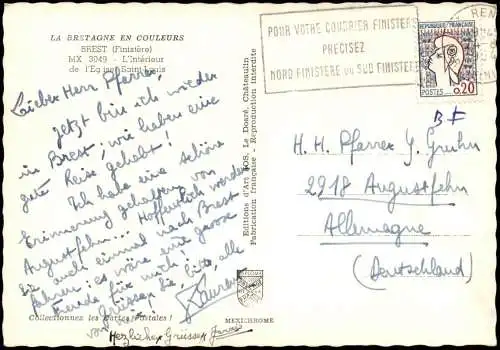 LA BRETAGNE EN COULEURS
BREST (Finistère)
MX 3049 - L'Intérieur
de l'Eglise Saint-Louis
Lieber Herr Pfarrer,
Jetzt bin ich wieder
in Brest; wir haben eine
gute Reise gehabt!
Ich habe eine schöne
Erinnerung gehalten von
Augustfehn... Hoffentlich werden
Sie auch einmal nach Brest
fahren: es wäre eine grosse
Freude für mich!
Grüssen Sie, bitte alle
von mir!
Laurent
Herzlichen Grüssen
Collectionnez les Cartes Postales !
Editions d'Art JOS, Le Doaré, Châteaulin
Fabrication française - Reproduction interdite
MEXICHROME
POUR VOTRE COURRIER FINISTERE
PRECISEZ
NORD FINISTERE OU SUD FINISTERE
REPUBLIQUE FRANÇAISE
POSTES 0,20
H. H. Pfarrer J. Gruhn
2918 Augustfehn
Allemagne
(Deutschland)